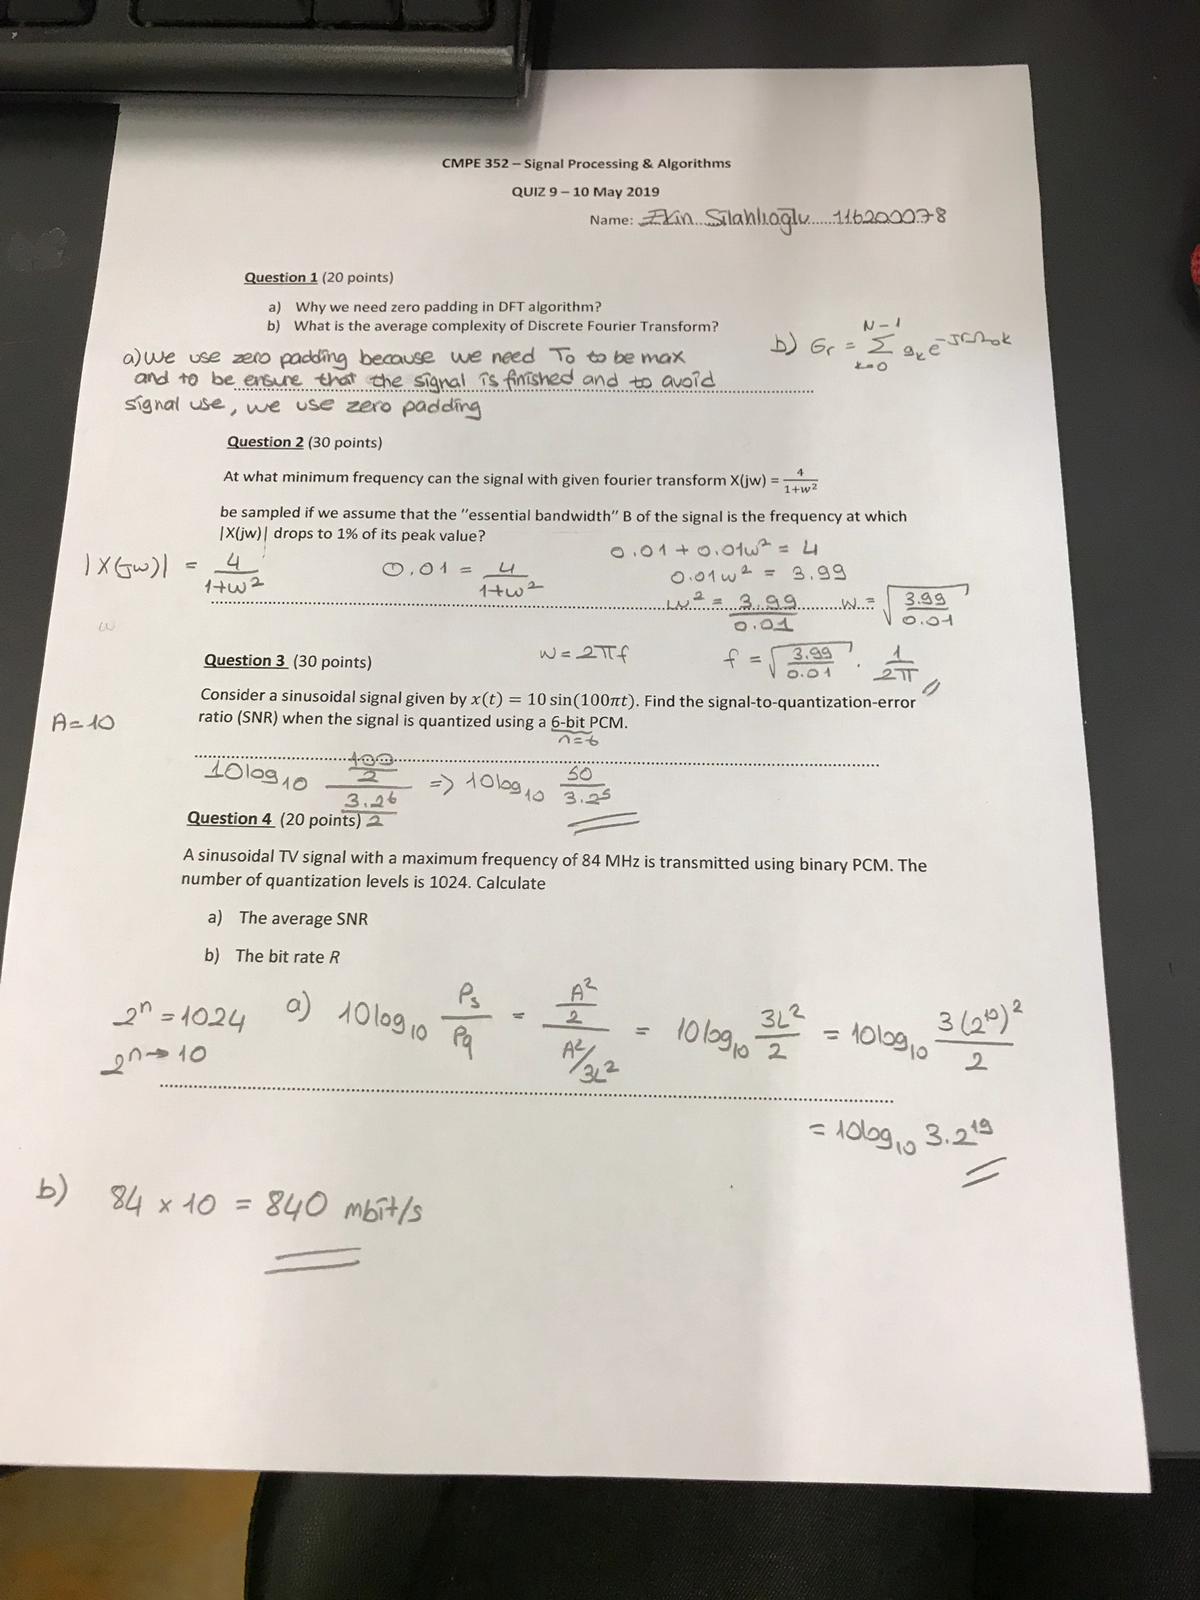 CMPE 352 – Signal Processing & Algorithms
QUIZ 9 – 10 May 2019
Name: Ekin Silahlıoğlu 116200078
Question 1 (20 points)
a) Why we need zero padding in DFT algorithm?
b) What is the average complexity of Discrete Fourier Transform?
a) We use zero padding because we need To to be max
and to be ensure that the signal is finished and to avoid
signal use, we use zero padding
b) Gr = N-1 Σ k=0 gk e^-jrΩok
Question 2 (30 points)
At what minimum frequency can the signal with given fourier transform X(jw) = 4/1+w²
be sampled if we assume that the "essential bandwidth" B of the signal is the frequency at which
|X(jw)| drops to 1% of its peak value?
|X(jw)| = 4/1+w² 0.01 = 4/1+w²
0.01 + 0.01w² = 4
0.01w² = 3.99
w² = 3.99/0.01 w = √3.99/0.01
w = 2πf f = √3.99/0.01 . 1/2π
Question 3 (30 points)
Consider a sinusoidal signal given by x(t) = 10 sin(100πt). Find the signal-to-quantization-error
ratio (SNR) when the signal is quantized using a 6-bit PCM.
n=6
A=10
10log10 100/2 / 3.2⁶/2 => 10log10 50/3.2⁵
Question 4 (20 points)
A sinusoidal TV signal with a maximum frequency of 84 MHz is transmitted using binary PCM. The
number of quantization levels is 1024. Calculate
a) The average SNR
b) The bit rate R
2ⁿ = 1024
2ⁿ → 10
a) 10log10 Ps/Pq = A²/2 / A²/3L² = 10log10 3L²/2 = 10log10 3(2¹⁰)²/2
= 10log10 3.2¹⁹
b) 84 x 10 = 840 mbit/s